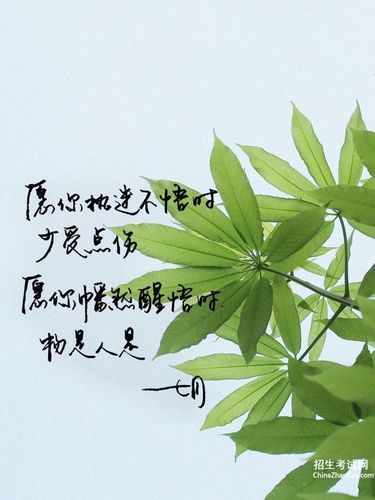 愿你执迷不悟时
少受点伤
愿你幡然醒悟时
物是人是
一七月
招生考试网
ChinaZhaoKao.com